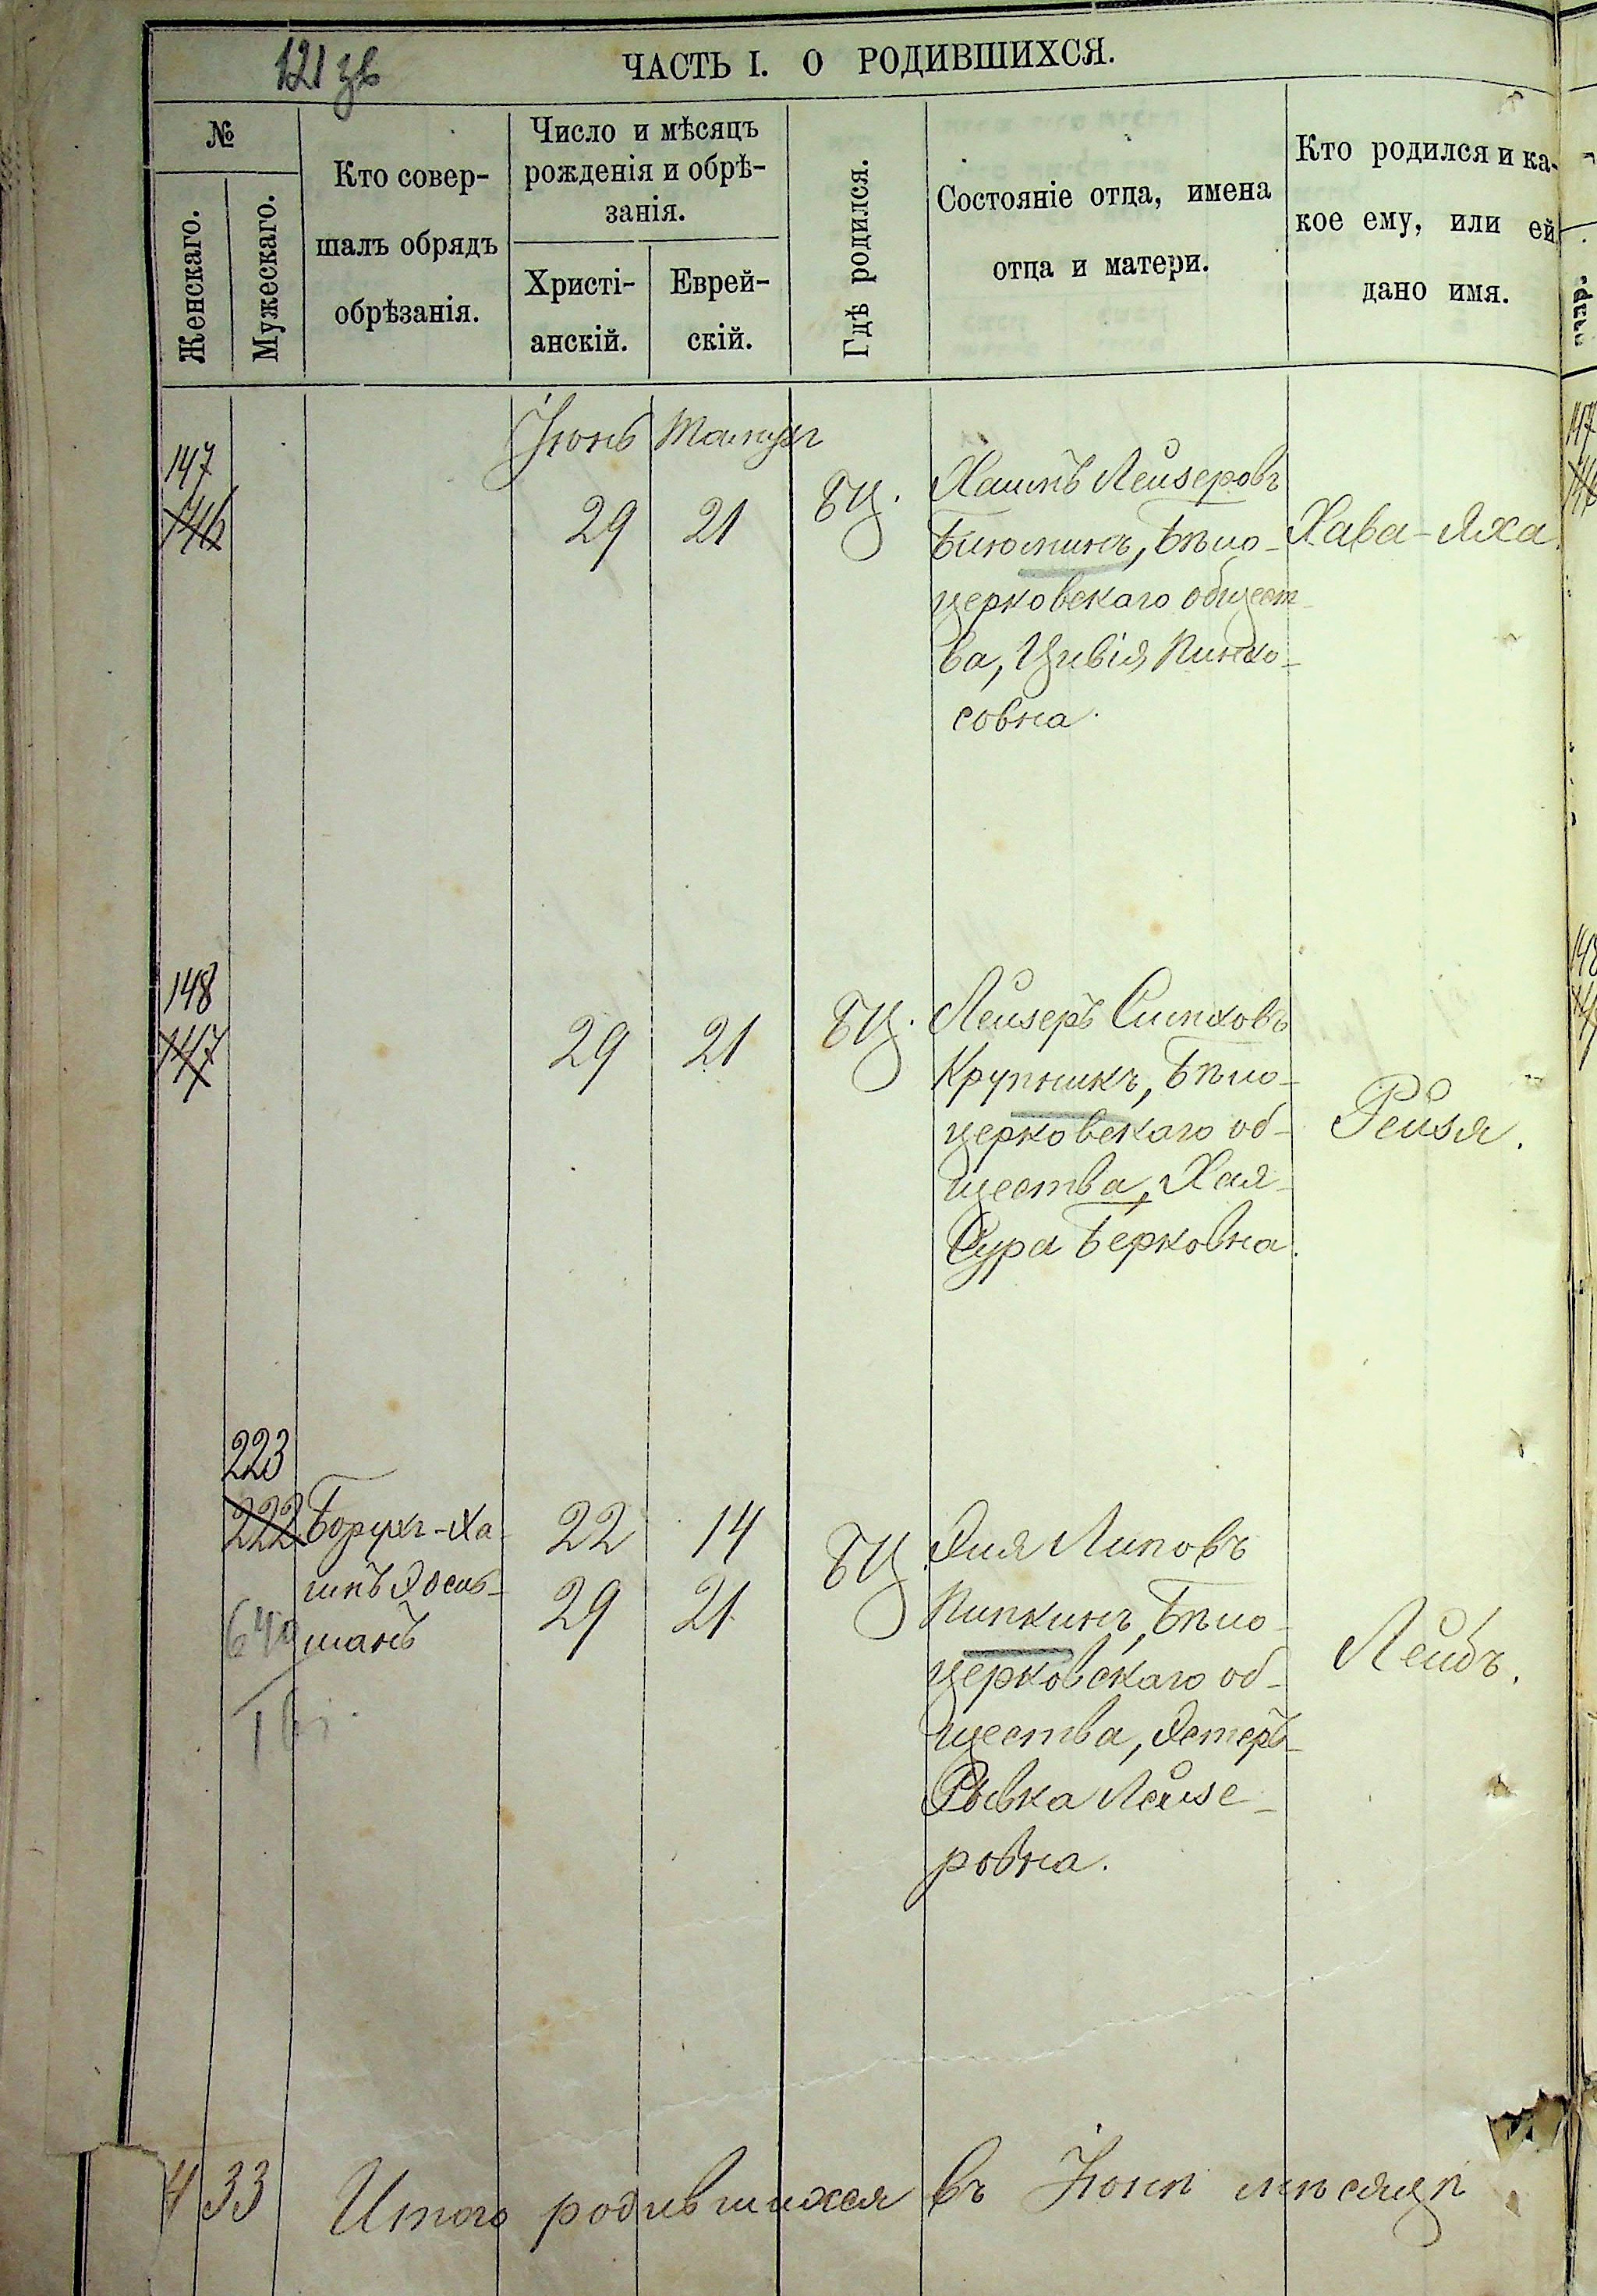 121 зв
ЧАСТЬ I. О РОДИВШИХСЯ.
№
Женскаго.
Мужескаго.
Кто совер-
шалъ обрядъ
обрѣзанія.
Число и мѣсяцъ
рожденія и обрѣ-
занія.
Христі-
анскій.
Еврей-
скій.
Гдѣ родился.
Состояніе отца, имена
отца и матери.
Кто родился и ка-
кое ему, или ей
дано имя.
Іюнь Тамузъ
147
146
29 21 БЦ.
Хаимъ Лейзеровъ
Биюминъ, Бѣло-
церковскаго общест-
ва, Цивія Пинхо-
совна.
Хава-Яха.
148
147
29 21 БЦ.
Лейзеръ Симховъ
Крупникъ, Бѣло-
церковскаго об-
щества, Хая-
Сура Берковна.
Рейзя.
223
222
Борухъ-Ха-
имъ
22 14
29 21
БЦ.
Эля Липовъ
Пипкинъ, Бѣло-
церковскаго об-
щества, Эстеръ-
Рывка Лейзе-
ровна.
Лейбъ.
33 Итого родившихся въ Іюнѣ мѣсяцѣ